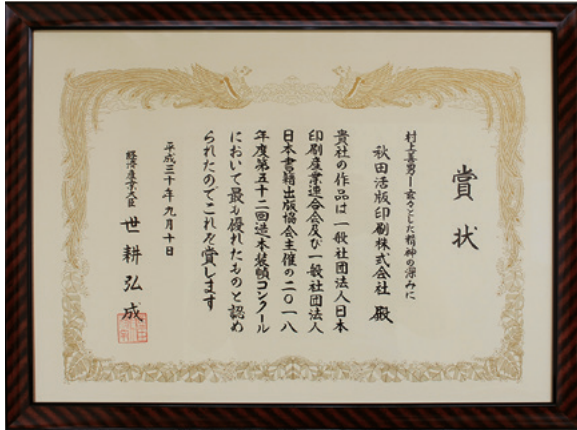 賞状
村上善男ー玄々とした精神の深みに
秋田活版印刷株式会社 殿
貴社の作品は一般社団法人日本
印刷産業連合会及び一般社団法人
日本書籍出版協会主催の二〇一八
年度第五十二回造本装幀コンクール
において最も優れたものと認め
られたのでこれを賞します
平成三十年九月十日
経済産業大臣 世耕弘成